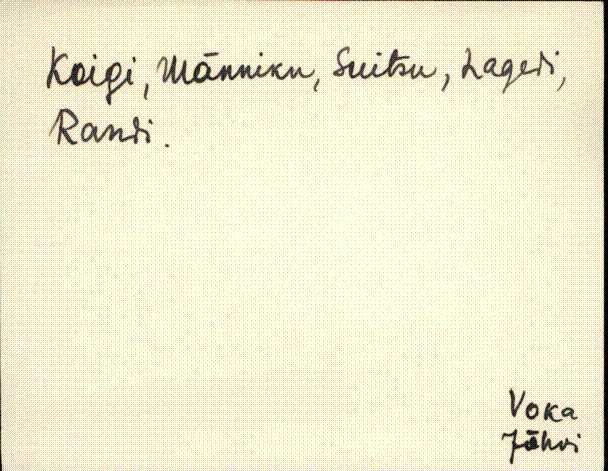 Koigi, Männiku, Suitsu, Lagedi,
Randi.
Voka
Jõhvi